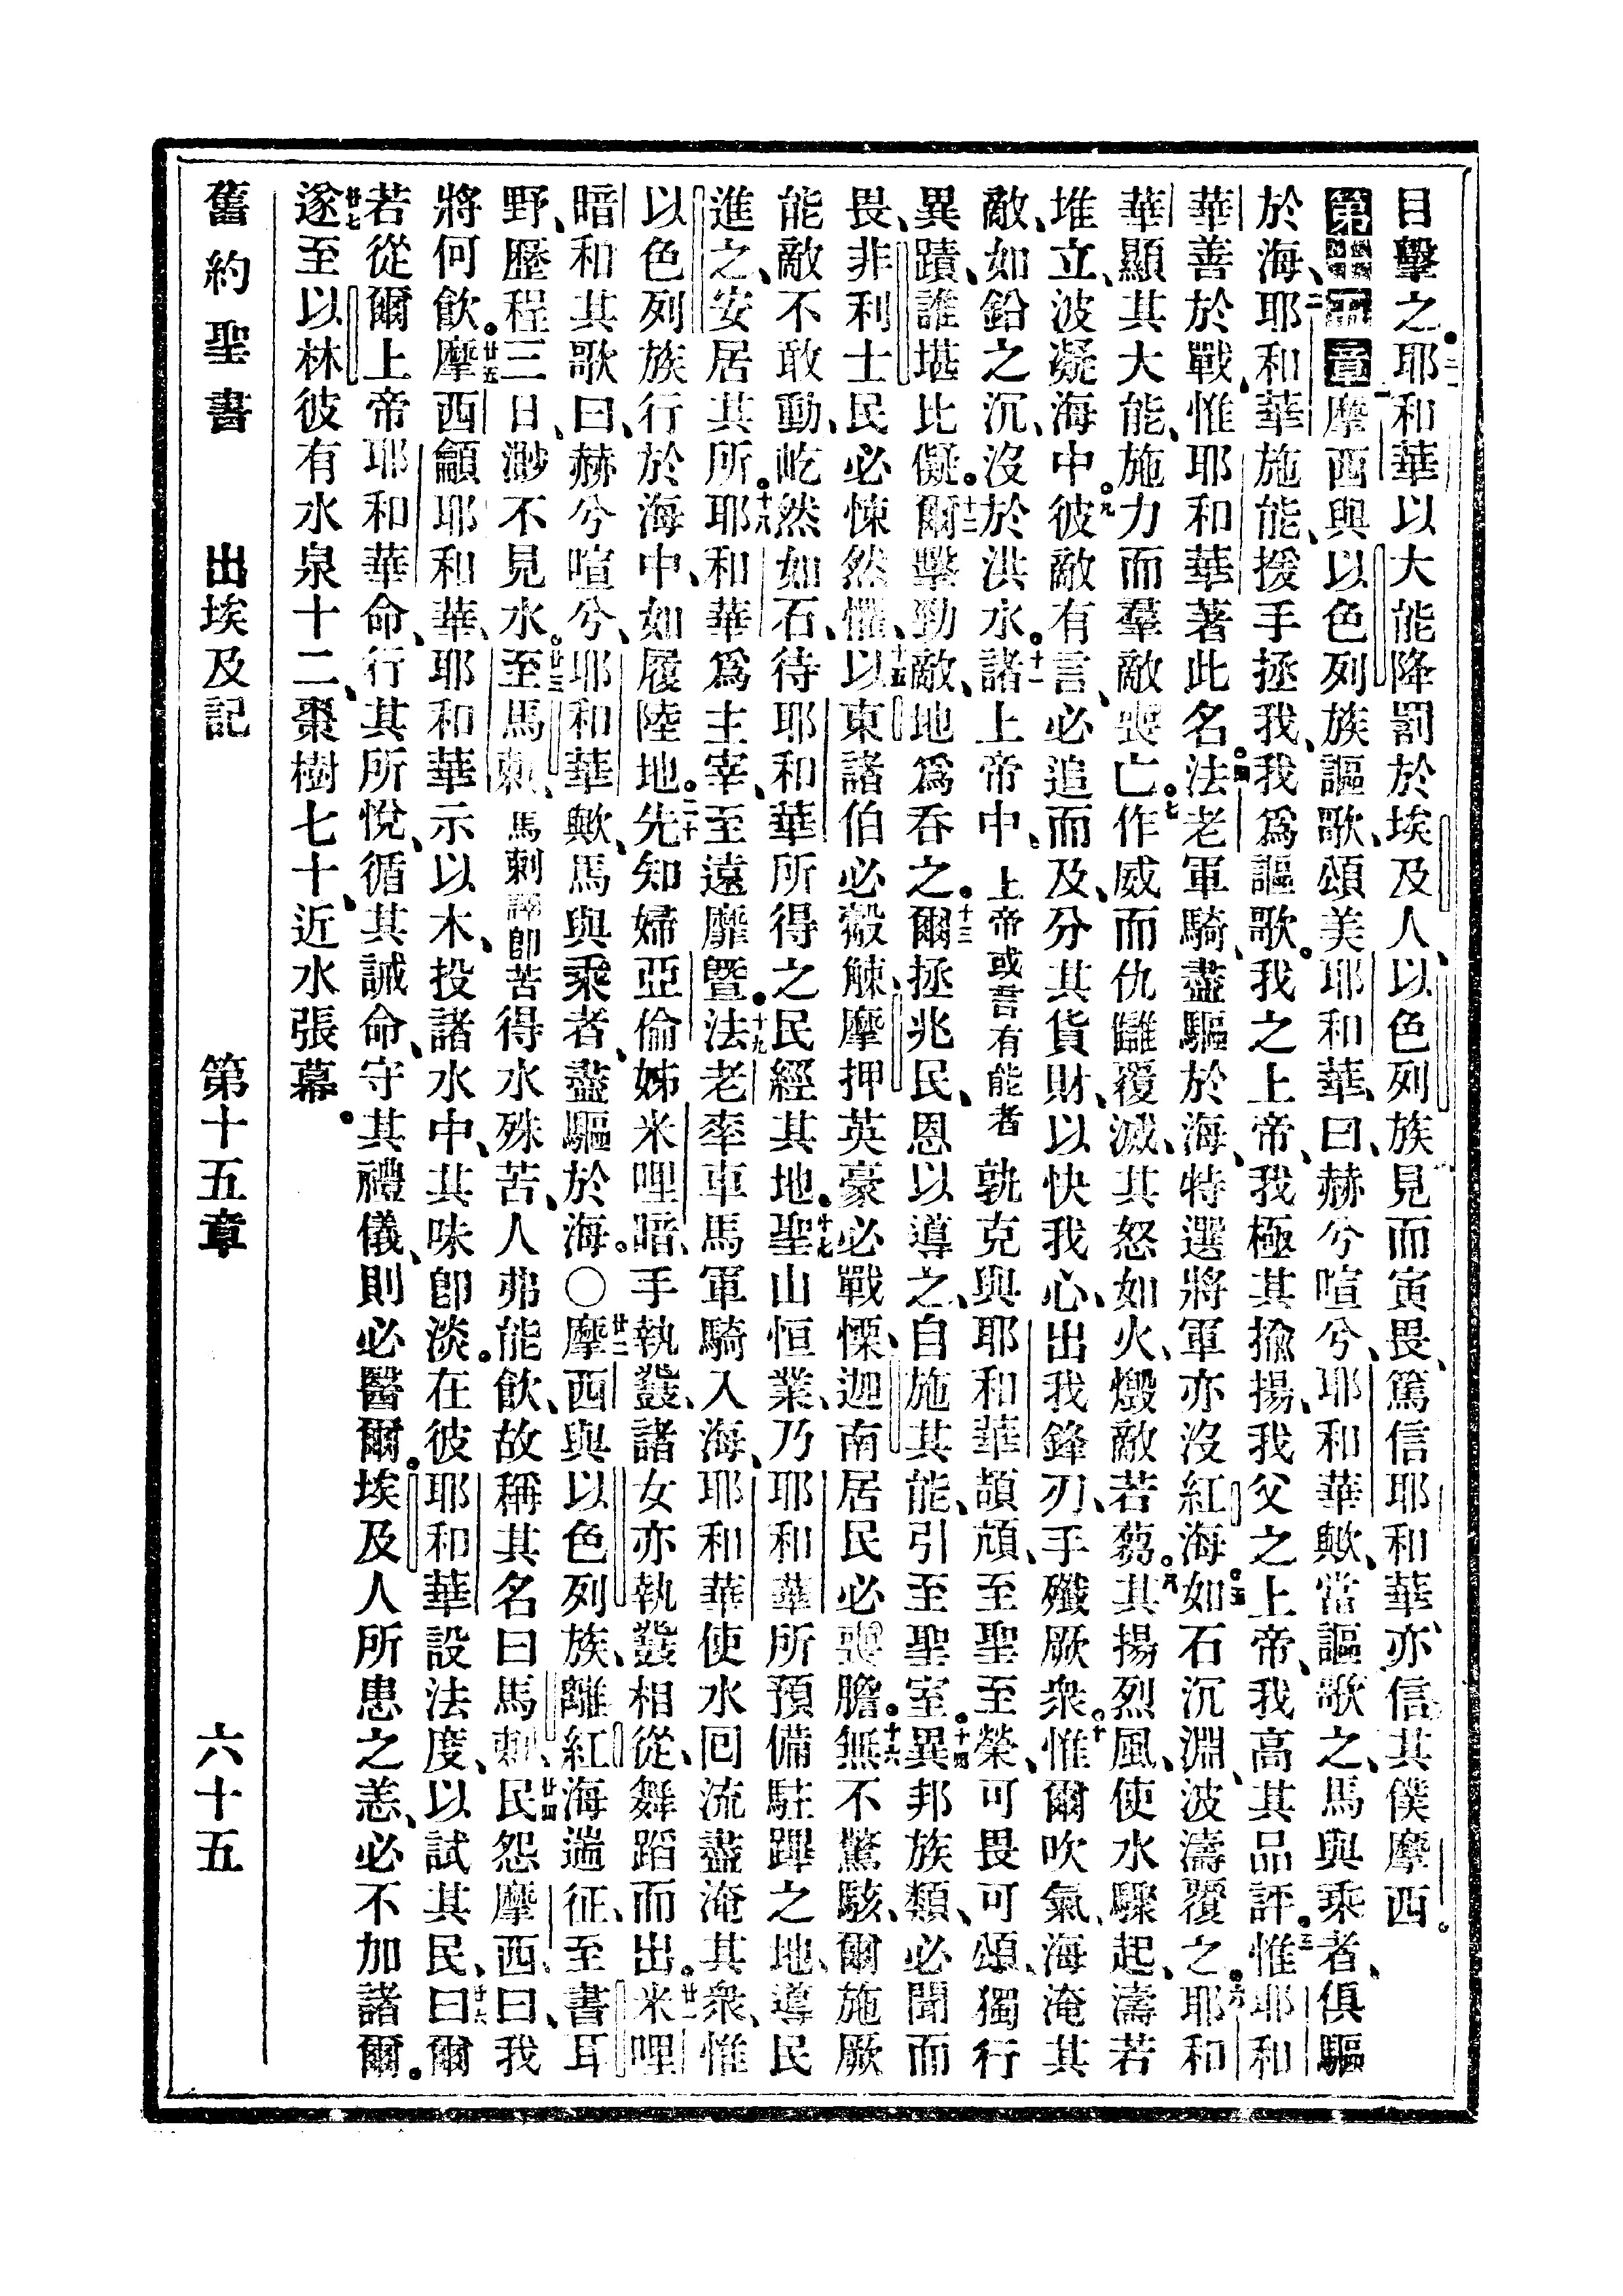 目擊之。三一耶和華以大能降罰於埃及人、以色列族見而寅畏、篤信耶和華、亦信其僕摩西。
第十五章一摩西與以色列族謳歌、頌美耶和華、曰、赫兮喧兮、耶和華歟、當謳歌之、馬與乘者、俱驅
於海、二耶和華施能、援手拯我、我爲謳歌。我之上帝、我極其揄揚、我父之上帝、我高其品評。三惟耶和
華善於戰、惟耶和華著此名。四法老軍騎、盡驅於海、特選將軍亦沒紅海。五如石沉淵、波濤覆之。六耶和
華顯其大能、施力而羣敵喪亡。七作威而仇讎覆滅、其怒如火、燬敵若芻。八其揚烈風、使水驟起、濤若
堆立、波凝海中。九彼敵有言、必追而及、分其貨財、以快我心、出我鋒刃、手殲厥衆。十惟爾吹氣、海淹其
敵、如鉛之沉、沒於洪水。十一諸上帝中、上帝或言有能者孰克與耶和華頡頏、至聖至榮、可畏可頌、獨行
異蹟、誰堪比儗。十二爾擊勁敵、地爲吞之。十三爾拯兆民、恩以導之、自施其能、引至聖室。十四異邦族類、必聞而
畏、非利士民必悚然懼、十五以東諸伯必觳觫、摩押英豪必戰慄、迦南居民必喪膽。十六無不驚駭、爾施厥
能、敵不敢動、屹然如石、待耶和華所得之民經其地。十七聖山恒業、乃耶和華所預備駐蹕之地、導民
進之、安居其所。十八耶和華爲主宰、至遠靡曁。十九法老率車馬軍騎入海、耶和華使水回流盡淹其衆、惟
以色列族行於海中、如履陸地。二十先知婦亞倫姊米哩暗、手執鼗、諸女亦執鼗相從、舞蹈而出。廿一米哩
暗和其歌曰、赫兮喧兮、耶和華歟、馬與乘者、盡驅於海。〇廿二摩西與以色列族、離紅海遄征、至書耳
野、歷程三日、渺不見水。廿三至馬剌、馬剌譯卽苦得水殊苦、人弗能飲、故稱其名曰馬剌、廿四民怨摩西、曰、我
將何飲。廿五摩西籲耶和華、耶和華示以木、投諸水中、其味卽淡。在彼耶和華設法度、以試其民、廿六曰、爾
若從爾上帝耶和華命、行其所悅、循其誡命、守其禮儀、則必醫爾。埃及人所患之恙、必不加諸爾。
廿七遂至以林、彼有水泉十二、棗樹七十、近水張幕。
舊約聖書 出埃及記 第十五章 六十五